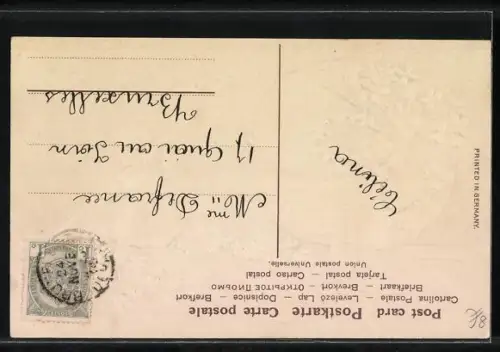 Post card Postkarte Carte postale
Cartolina Postale — Levelező Lap — Dopisnice — Brefkort
Briefkaart — Brevkort — ОТКРЫТОЕ ПИСЬМО
Tarjeta postal — Cartao postal
Union postale Universelle.
Mme Defrance
17 Quai au Foin
Bruxelles
Célina
PRINTED IN GERMANY.
24
NOVE